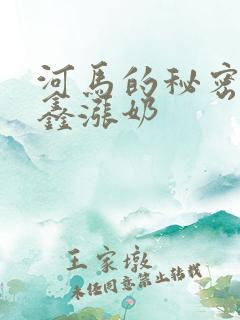 河马的秘密
鑫涨奶
王家墩
未经同意禁止转载